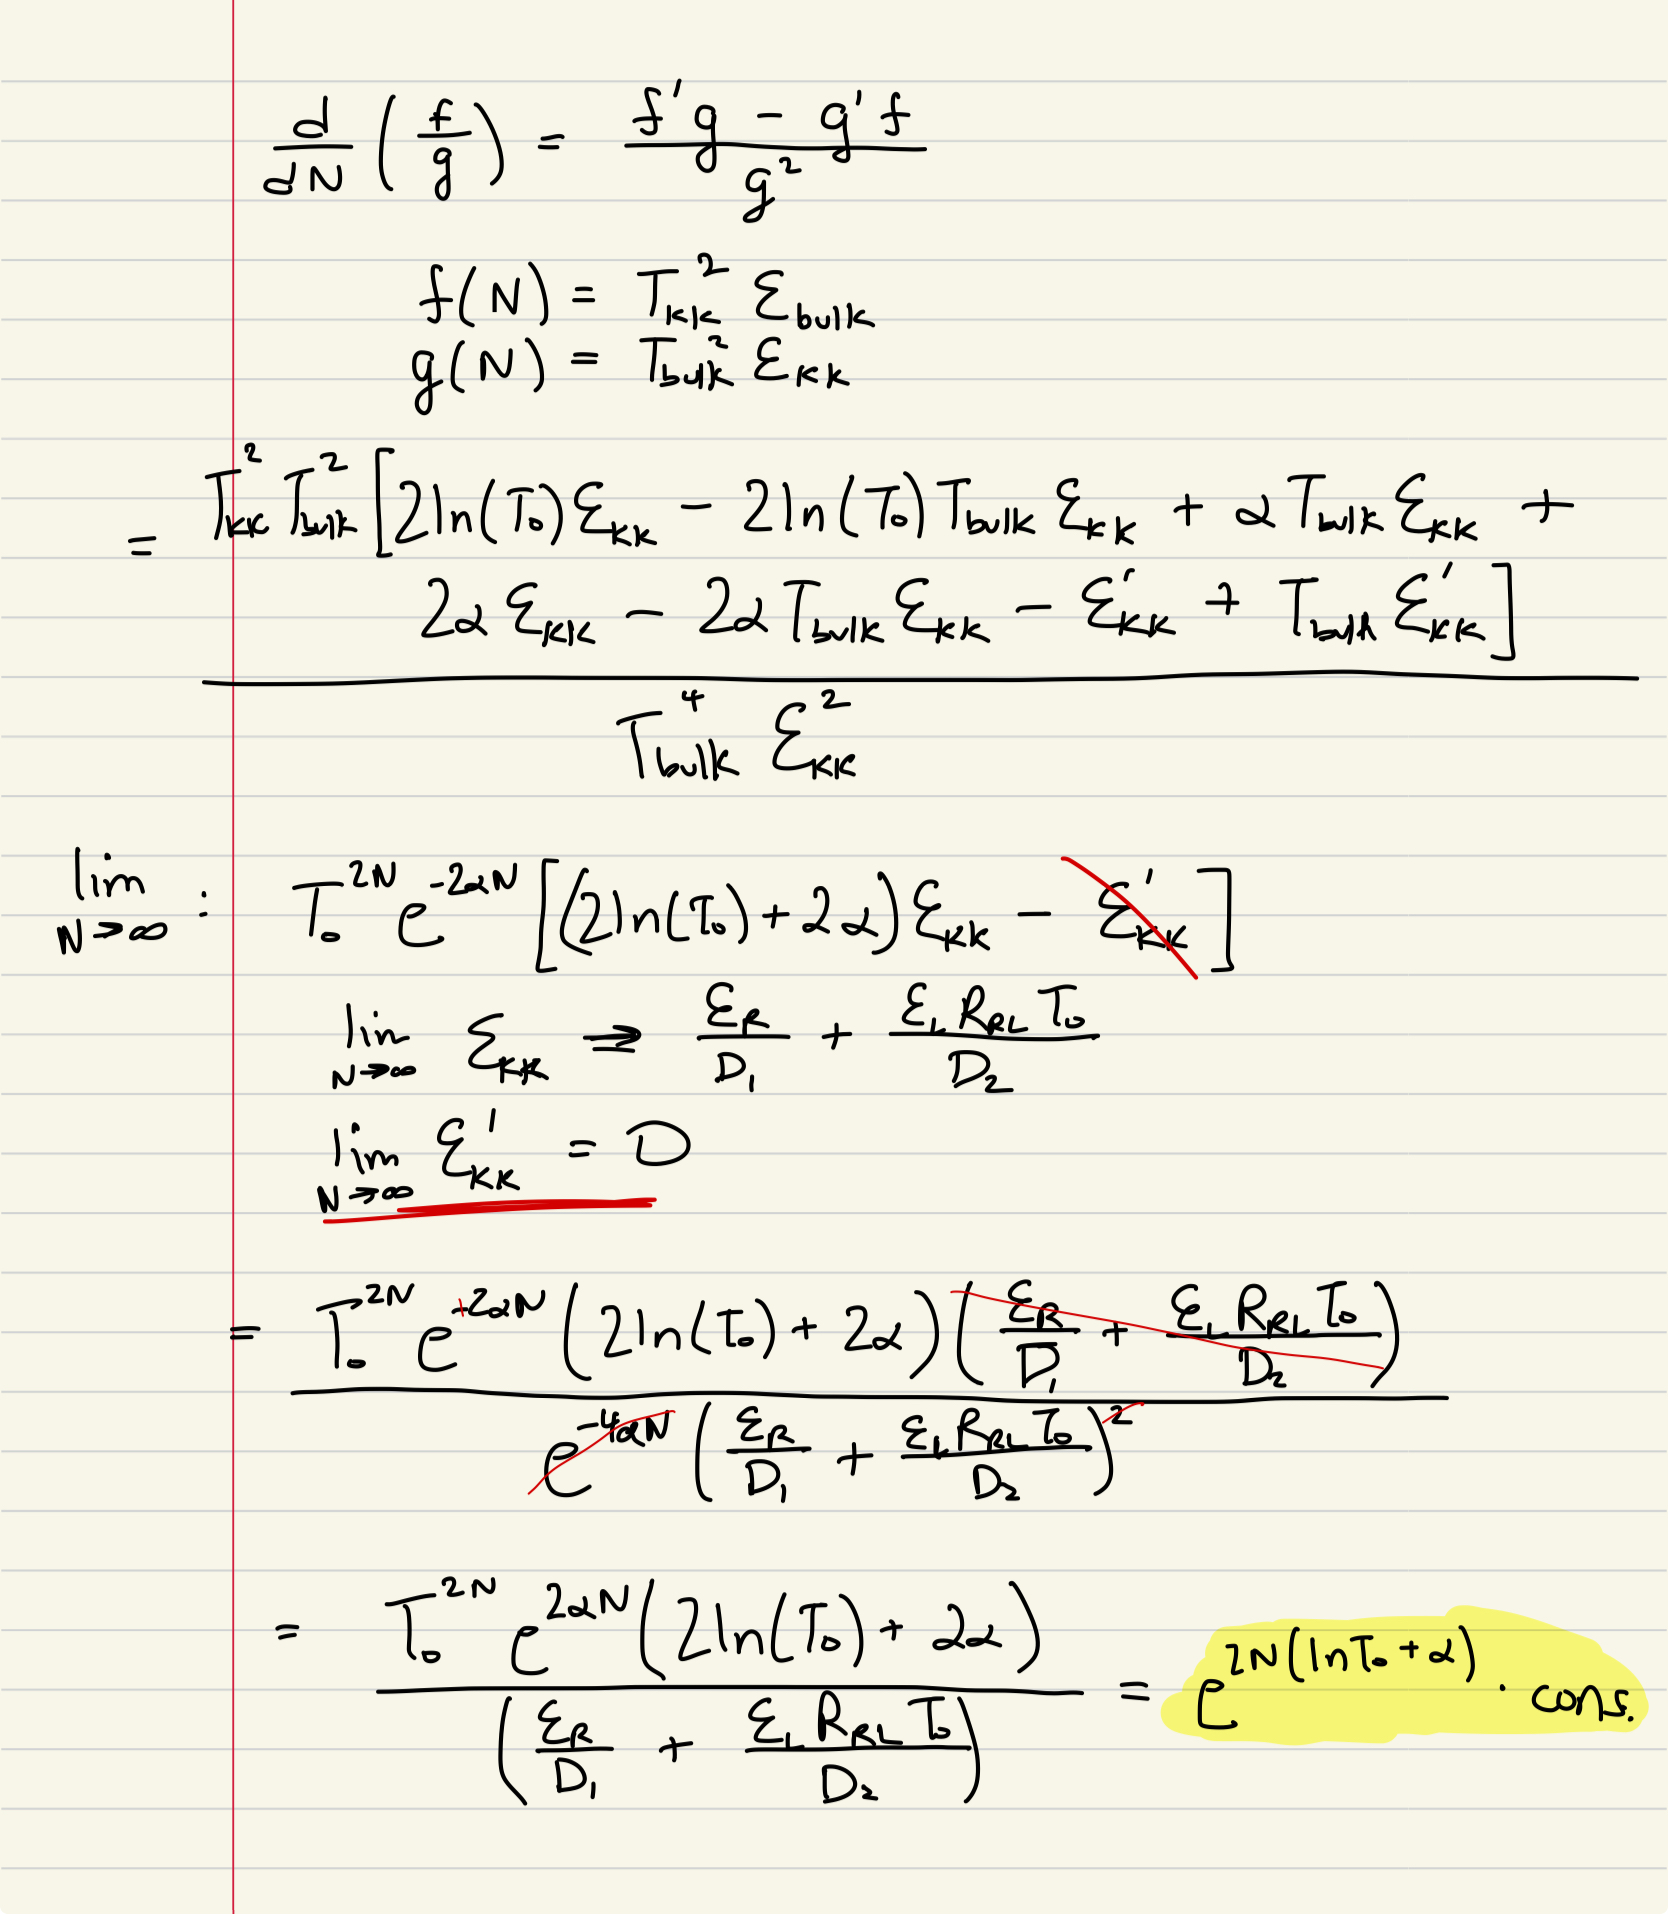 d/dN (f/g) = (f'g - g'f)/g²
f(N) = T_KK² ℰ_bulk
g(N) = T_bulk² ℰ_KK
= T_KK² T_bulk² [2ln(T₀)ℰ_KK - 2ln(T₀)T_bulk ℰ_KK + αT_bulk ℰ_KK +
2αℰ_KK - 2αT_bulk ℰ_KK - ℰ'_KK + T_bulk ℰ'_KK]
T_bulk⁴ ℰ_KK²
lim N→∞ : T₀^2N e^-2αN [(2ln(T₀)+2α)ℰ_KK - ℰ'_KK]
lim N→∞ ℰ_KK ⇒ ℰ_R/D₁ + ℰ_L R_RL T₀/D₂
lim N→∞ ℰ'_KK = 0
= T₀^2N e^+2αN (2ln(T₀) + 2α)(ℰ_R/D₁ + ℰ_L R_RL T₀/D₂)
e^-4αN (ℰ_R/D₁ + ℰ_L R_RL T₀/D₂)²
= T₀^2N e^2αN (2ln(T₀) + 2α) / (ℰ_R/D₁ + ℰ_L R_RL T₀/D₂) = e^2N(lnT₀+α) · cons.